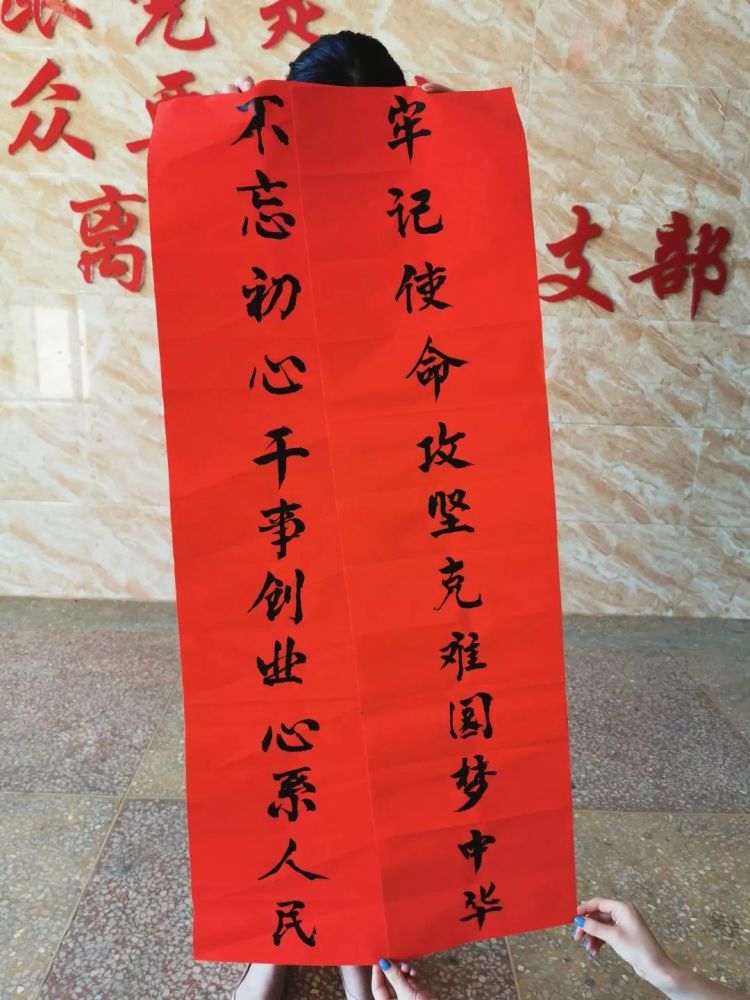 众
离 支部
不忘初心干事创业心系人民
牢记使命攻坚克难圆梦中华